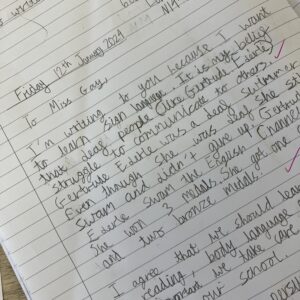 Friday 12th January 2024
To Miss Gay,
I'm writing to you because I want
to learn sign language. It is my belief
that deaf people (like Gertrude Ederle)
struggle to communicate to others.
Gertrude Ederle was a deaf swimmer
Even though she was deaf she still
swam and didn't give up. Gertrude
Ederle swam the English Channel
She won 3 medals. She got one
and two bronze medals.
I agree that we should lear
reading, body language
important we take care
our school.